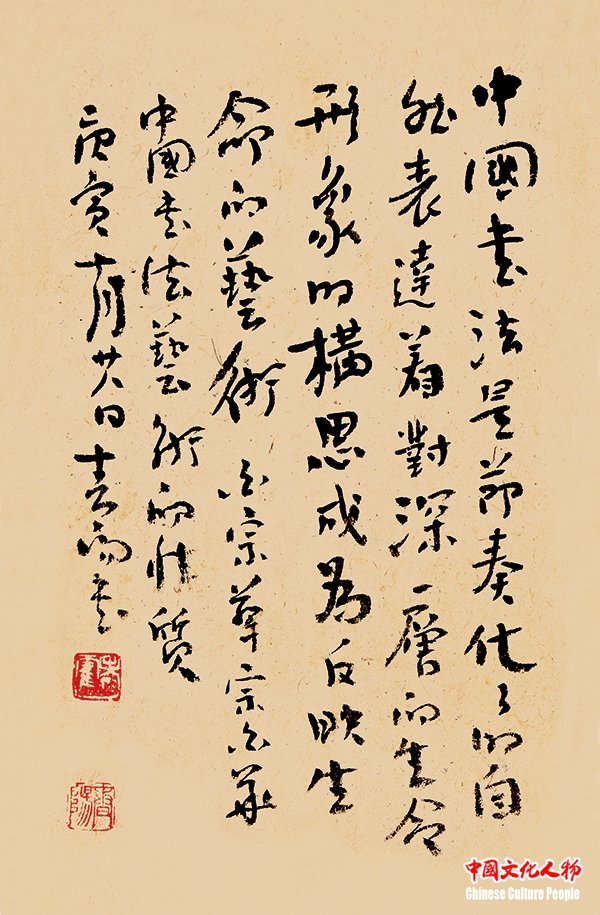 中國书法是節奏化了的自
然表達着對深一層的生命
形象的構思成為反映生
命的藝術 白宗華宗白華
中國书法藝術的性質
庚寅十月廿八日 书
中國文化人物
Chinese Culture People